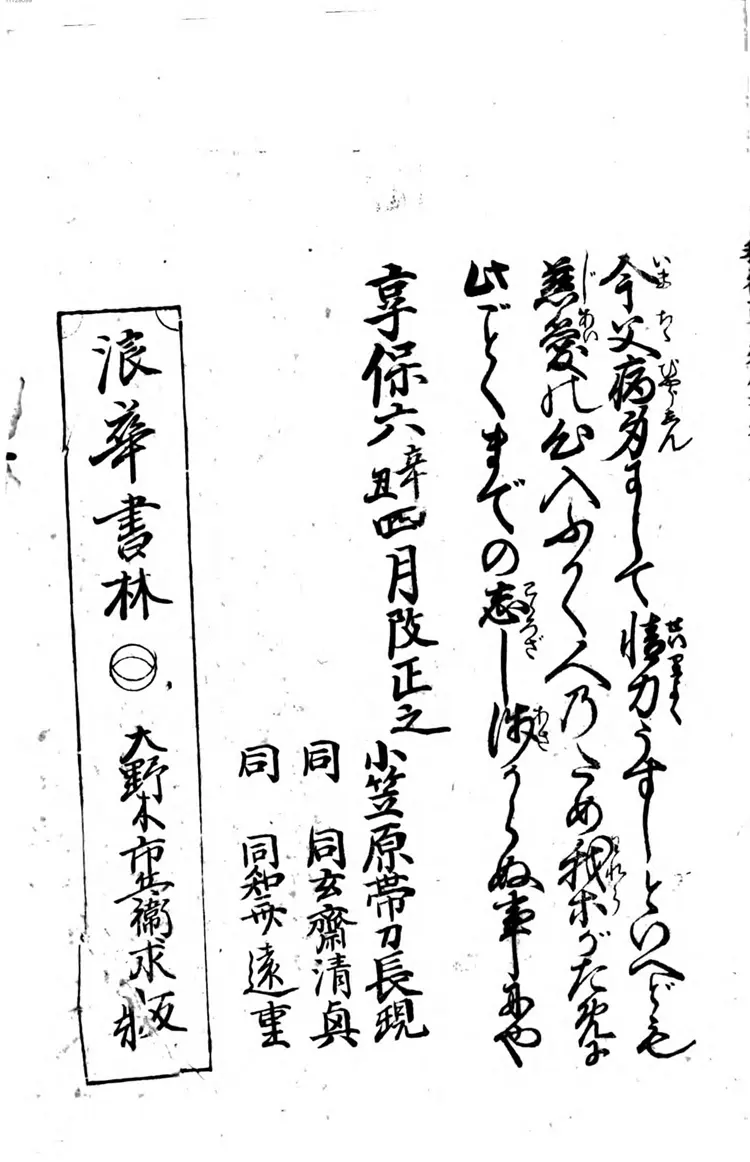 今父病身にして情力うすしといへども
慈愛の心入ふかく人乃ため我等がために
此ごとくまでの志し浅からぬ事にや
享保六辛丑四月改正之
小笠原帯刀長現
同 同玄齋清眞
同 同知無遠重
浪華書林
大野木市兵衞求板